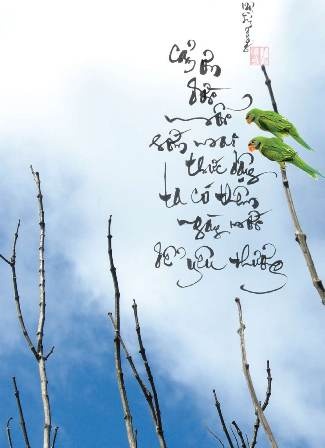 Cảm ơn
đời
mỗi
sớm mai
thức dậy
ta có thêm
ngày nữa
để yêu thương